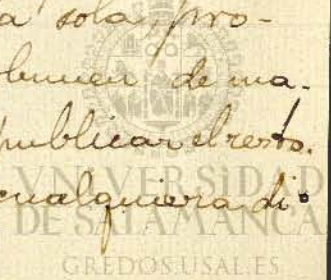 a sola, pro-
lumen de ma-
publicar el resto.
cualquiera di-
VNiVERSiDAD
DE SALAMANCA
GREDOS.USAL.ES